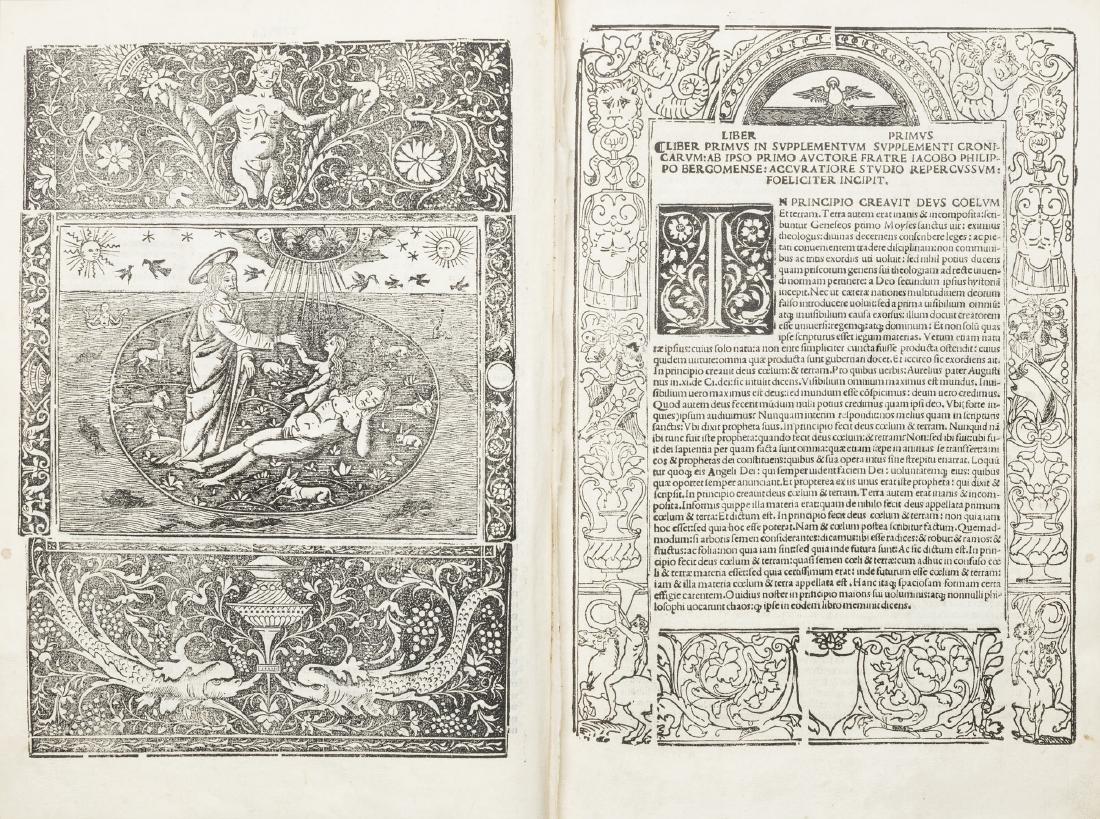 LIBER PRIMVS
LIBER PRIMVS IN SVPPLEMENTVM SVPPLEMENTI CRONI
CARVM: AB IPSO PRIMO AVCTORE FRATRE IACOBO PHILIP-
PO BERGOMENSE: ACCVRATIORE STVDIO REPERCVSSVM:
FOELICITER INCIPIT.
IN PRINCIPIO CREAVIT DEVS COELVM
Et terram. Terra autem erat inanis & incomposita: scri
buntur Geneseos primo Moyses sanctus uir: eximius
theologus: diuinas decernens conscribere leges: ac pie
tati conuenientem tradere disciplinam: non communi
bus ac tritis exordiis uti uoluit: sed nihil potius ducens
quam priscorum generis sui theologiam ad recte uiuen
di normam pertinere: a Deo secundum ipsius hystoriā
incepit. Nec ut cæteræ nationes multitudinem deorum
falso introducere uoluit: sed a prima uisibilium omniū:
atq; inuisibilium causa exorsus: illum docuit creatorem
esse uniuersi: regemq; atq; dominum: Et non solū quas
ipse scripturus esset legum materias. Verum etiam natu
ræ ipsius: cuius solo natura non ente simpliciter cuncta fuisse producta ostendit: cuius
quidem uirtute: omnia quæ producta sunt gubernari docet. Et iccirco sic exordiens ait.
In principio creauit deus cœlum: & terram. Pro quibus uerbis: Aurelius pater Augusti
nus in .xi. de Ci. dei: sic intulit dicens. Visibilium omnium maximus est mundus. Inui-
sibilium uero maximus est deus: sed mundum esse cōspicimus: deum uero credimus.
Quod autem deus fecerit mūdum nulli potius credimus quam ipsi deo. Vbi (forte in-
quies) ipsum audiuimus? Nunquam interim respondit: nos melius quam in scripturis
sanctis: Vbi dixit propheta suus. In principio fecit deus cœlum: & terram. Nunquid nā
ibi tunc fuit iste propheta: quando fecit deus cœlum: & terram? Non: sed ibi fuit: ubi fu-
it dei sapientia per quam facta sunt omnia: quæ etiam sæpe in animas se transfert: ami
cos & prophetas dei constituens: quibus & sua opera intus sine strepitu enarrat. Loquū
tur quoq; eis Angeli Dei: qui semper uident faciem Dei: uoluntatemq; eius: quibus
quæ oportet semper anunciant. Et propterea ex iis unus erat iste propheta: qui dixit &
scripsit. In principio creauit deus cœlum & terram. Terra autem erat inanis & incom-
posita. Informis quippe illa materia erat: quam de nihilo fecit deus appellata primum
cœlum & terra: Et dictum est. In principio fecit deus cœlum & terram: non quia iam
hoc esset: sed quia hoc esse poterat. Nam & cœlum postea scribitur factum. Quemad-
modum: si arboris semen considerantes: dicamus ibi esse radices: & robur: & ramos: &
fructus: ac folia: non quia iam sint: sed quia inde futura sunt: Ac sic dictum est. In prin-
cipio fecit deus cœlum & terram: quasi semen cœli & terræ: cum adhuc in confuso cœ
li & terræ materia esset: sed quia certissimum erat: inde futurum esse cœlum & terram:
iam & illa materia cœlum & terra appellata est. Hanc itaq; spaciosam formam certa
effigie carentem. Ouidius noster in principio maioris sui uoluminis: atq; nonnulli phi-
losophi uocarunt chaos: q ipse in eodem libro meminit dicens.